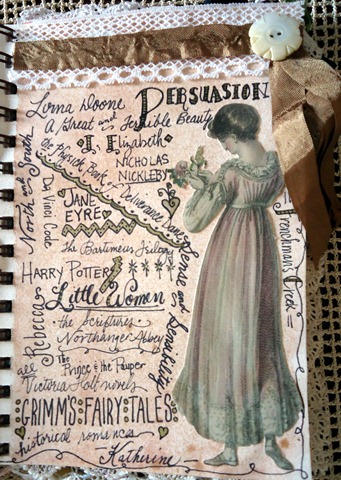 Lorna Doone
PERSUASION
A Great and Terrible Beauty
I, Elizabeth
North and South
The Physick Book of Deliverance Dane
NICHOLAS
NICKLEBY
Da Vinci Code
JANE
EYRE
the Bartimeus Trilogy
Sense and Sensibility
Frenchman's Creek
HARRY POTTER
Little Women
Rebecca
the Scriptures
Northanger Abbey
The Prince & the Pauper
all Victoria Holt novels
GRIMM'S FAIRY TALES
historical romances
Katherine